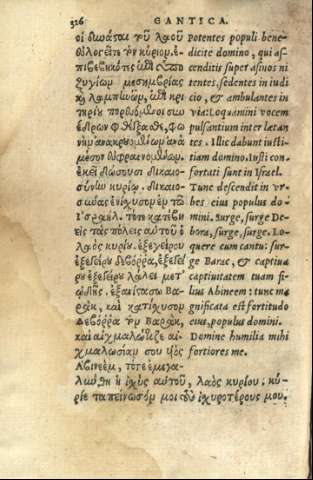 326 CANTICA.
οἱ δυνάσται τοῦ λαοῦ
εὐλογεῖτε τὸν κύριον. ἐ-
πιβεβηκότες ἐπὶ
μεσημβρίας
κριτηρίου
ἐκεῖ δώσουσι δικαιο-
σύνην κυρίῳ. δικαιο-
ἐνίσχυσον ἐν τῷ
Ἰσραήλ. τότε κατέβη
εἰς τὰς πόλεις αὐτοῦ ὁ
λαὸς κυρίου. ἐξεγείρου
ἐξεγείρου δεβόρρα, ἐξεγεί
ρου ἐξεγείρου λάλει μετ'
ᾠδῆς. ἐξανίστασο Βα-
ρὰκ, καὶ κατίσχυσον
Δεβόρρα τὸν Βαρὰκ,
καὶ αἰχμαλώτιζε αἰ-
χμαλωσίαν σου υἱὸς
Ἀβινεὲμ, τότε ἐμεγα-
λύνθη ἡ ἰσχὺς αὐτοῦ, λαὸς κυρίου. κύ-
ριε ταπείνωσόν μοι τοὺς ἰσχυροτέρους μου.
potentes populi bene-
dicite domino, qui as-
cenditis super asinos ni
tentes, sedentes in iudi
cio, & ambulantes in
via: loquamini vocem
pulsantium inter lætan
tes. Illic dabunt iusti-
tiam domino. Iusti con-
fortati sunt in Israel.
Tunc descendit in vr-
bes eius populus do-
mini. Surge, surge De-
bora, surge, surge. Lo-
quere cum cantu: sur-
ge Barac, & captiua
captiuitatem tuam fi-
lius Abineem: tunc ma
gnificata est fortitudo
eius, populus domini.
Domine humilia mihi
fortiores me.